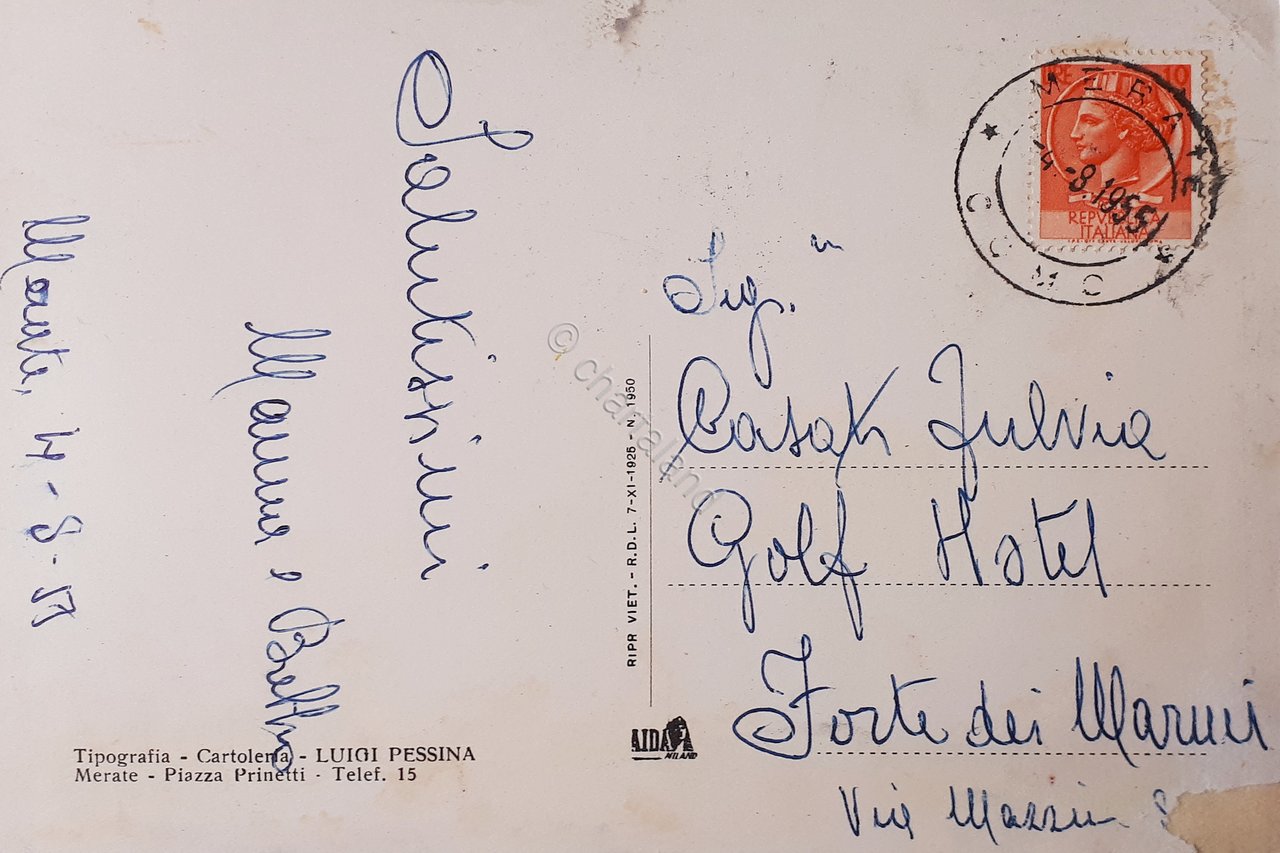 Salutissimi
Mamma e
Merate, 4-8-55
Tipografia - Cartoleria - LUIGI PESSINA
Merate - Piazza Prinetti - Telef. 15
RIPR VIET. - R.D.L. 7-XI-1925 - N. 1950
AIDA
MILANO
© charraland
LIRE 10
REPVBBLICA
ITALIANA
MERATE
-4.-8.1955
COMO
Sig.na
Casati Fulvia
Golf Hotel
Forte dei Marmi
Via Mazzini